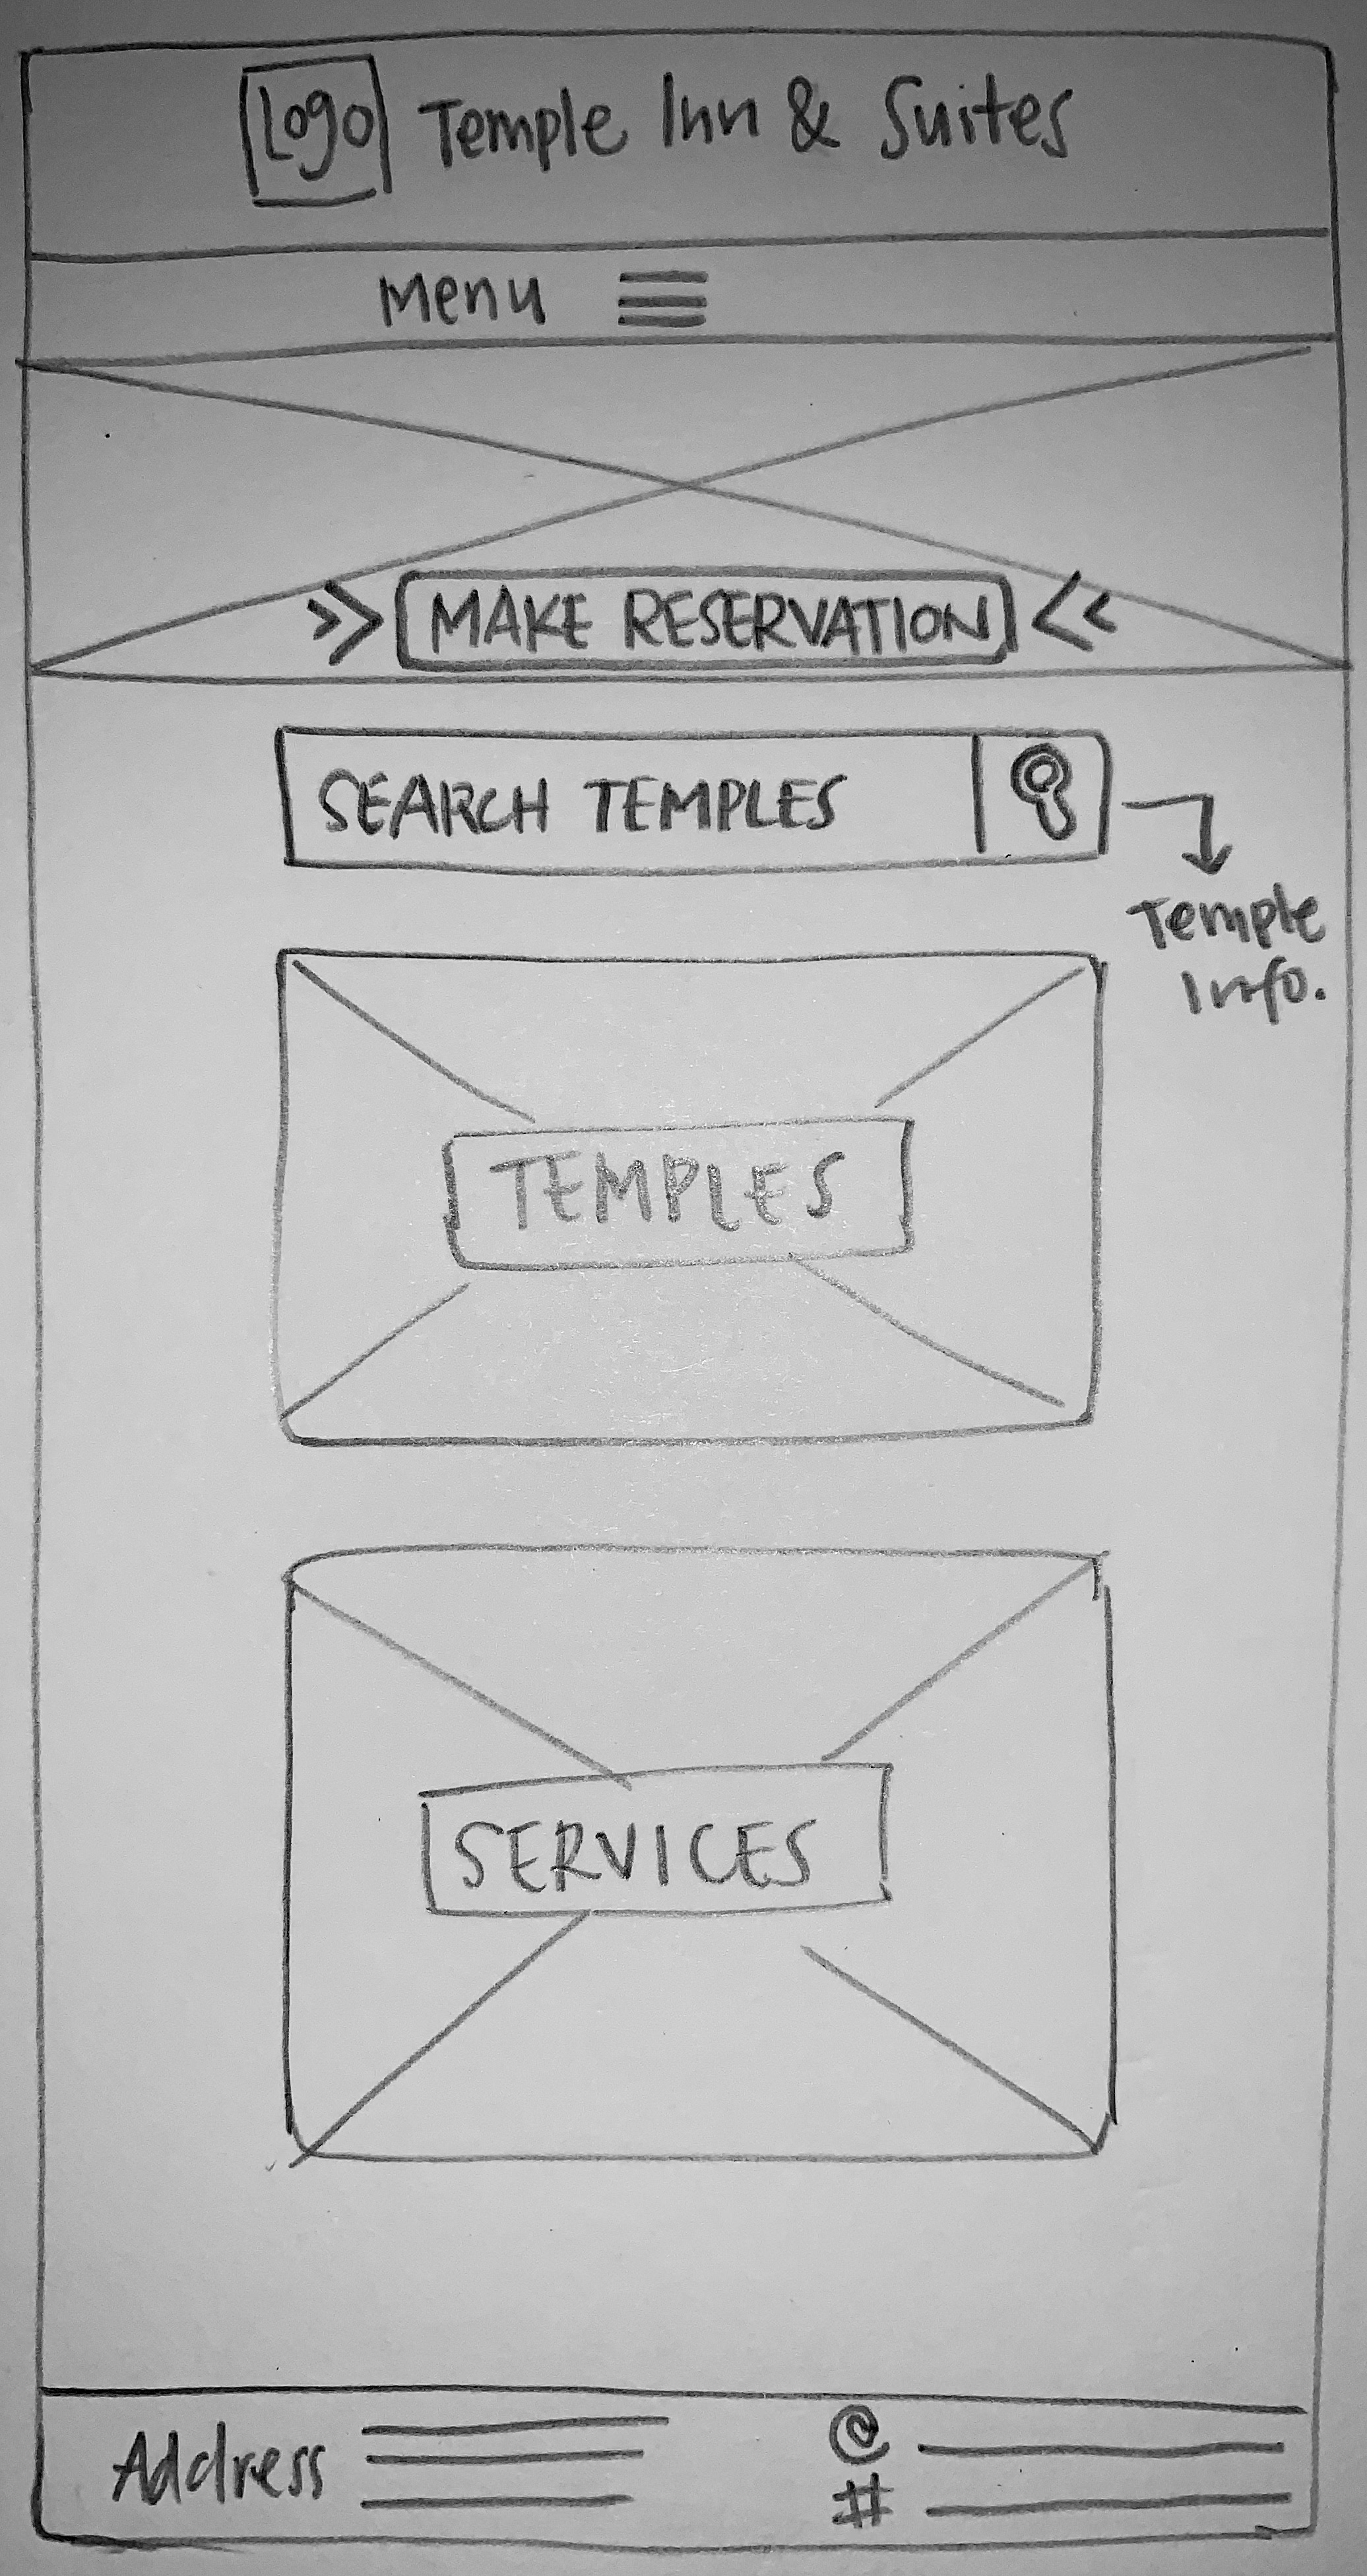 Logo Temple Inn & Suites
Menu
>> MAKE RESERVATION <<
SEARCH TEMPLES
Temple
Info.
TEMPLES
SERVICES
Address
@
#